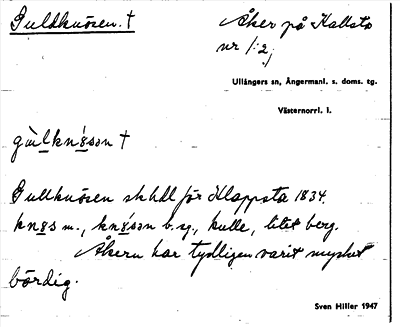 Guldknösen. †
Åker på Kallsta
nr 1:2;
Ullångers sn, Ångermanl. s. doms. tg.
Västernorrl. l.
gùlkn8̀sən †
Gullknösen sk hdl för Klappsta 1834.
kn8s m., kn8̀sən b. sg., kulle, litet berg.
Åkern har tydligen varit mycket
bördig.
Sven Hiller 1947